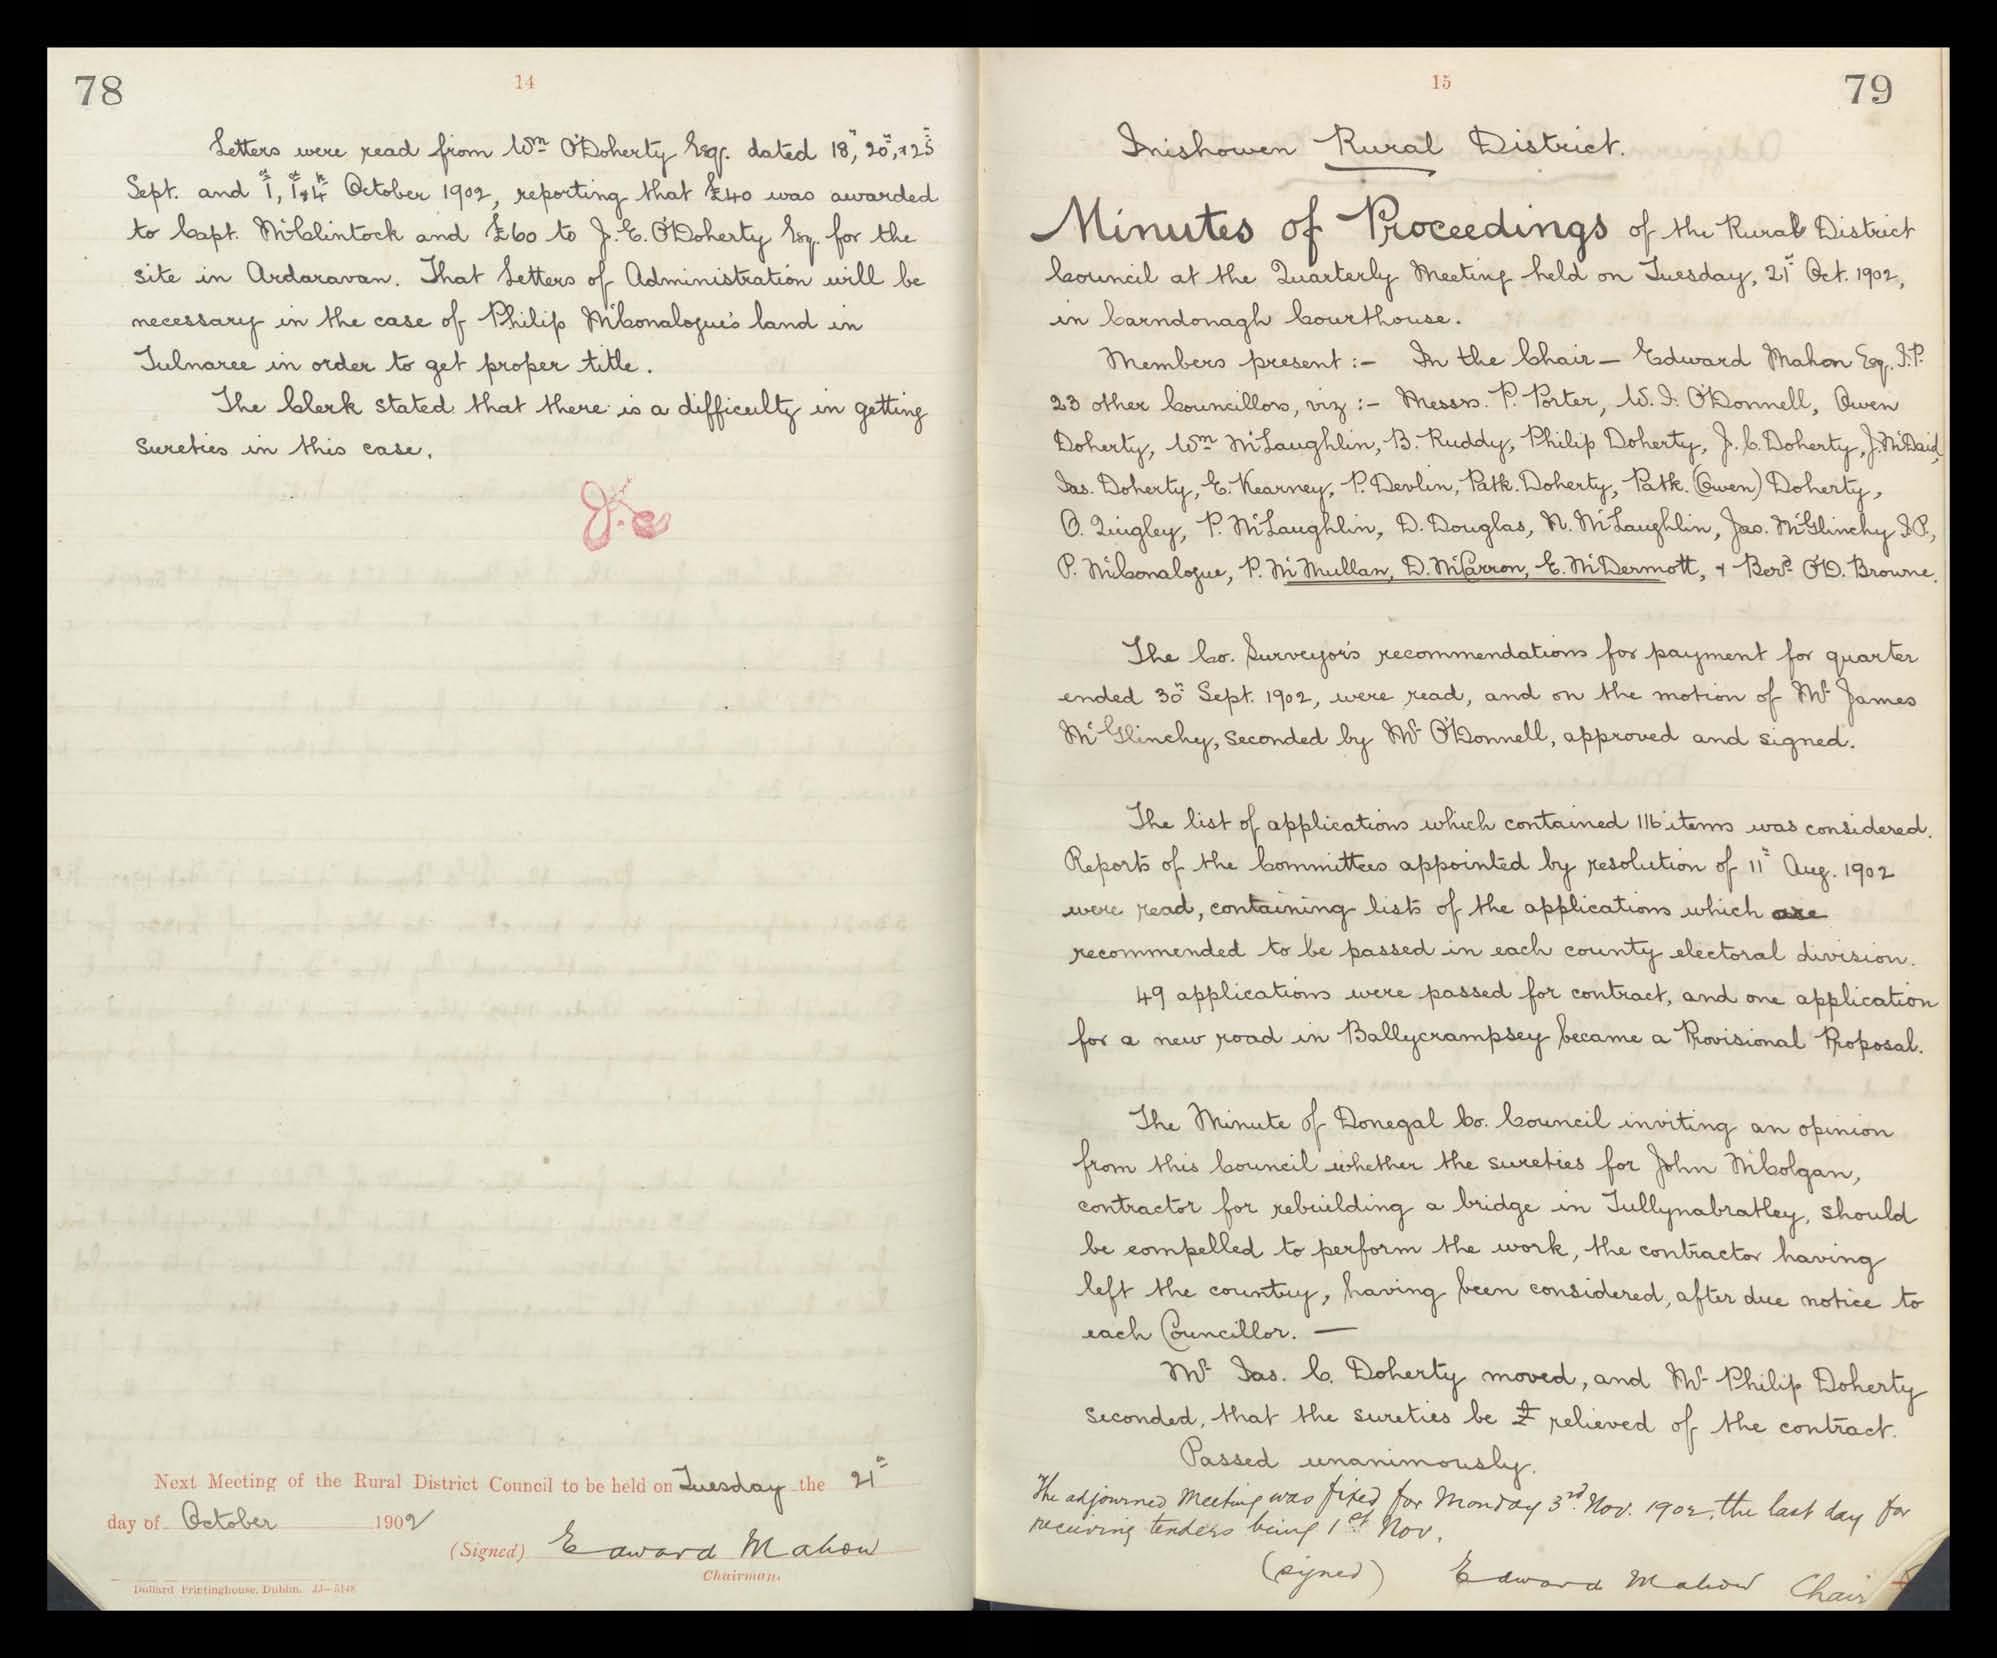 78
14
Letters were read from Wm O'Doherty Esqr. dated 18th, 20th, + 25th
Sept. and 1st, 1st + 4th October 1902, reporting that £40 was awarded
to Capt. McClintock and £60 to J. E. O'Doherty Esq. for the
site in Ardaravan. That Letters of Administration will be
necessary in the case of Philip McConalogue's land in
Tulnaree in order to get proper title.
The Clerk stated that there is a difficulty in getting
sureties in this case.
Next Meeting of the Rural District Council to be held on Tuesday the 21st
day of October 1902
(Signed) Edward Mahon
Chairman.
Dollard Printinghouse, Dublin. JJ—5148
15
79
Inishowen Rural District.
Minutes of Proceedings of the Rural District
Council at the Quarterly Meeting held on Tuesday, 21st Oct. 1902,
in Carndonagh Courthouse.
Members present :- In the Chair — Edward Mahon Esq. J.P.
23 other Councillors, viz :- Messrs. P. Porter, W. J. O'Donnell, Owen
Doherty, Wm McLaughlin, B. Ruddy, Philip Doherty, J. C. Doherty, J. McDaid,
Jas. Doherty, E. Kearney, P. Devlin, Patk. Doherty, Patk. (Owen) Doherty,
O. Quigley, P. McLaughlin, D. Douglas, N. McLaughlin, Jas. McGlinchy J.P.,
P. McConalogue, P. McMullan, D. McCarron, E. McDermott, + Berd. O'D. Browne.
The Co. Surveyor's recommendations for payment for quarter
ended 30th Sept. 1902, were read, and on the motion of Mr James
McGlinchy, seconded by Mr O'Donnell, approved and signed.
The list of applications which contained 116 items was considered.
Reports of the Committees appointed by resolution of 11th Aug. 1902
were read, containing lists of the applications which are
recommended to be passed in each county electoral division.
49 applications were passed for contract, and one application
for a new road in Ballycrampsey became a Provisional Proposal.
The Minute of Donegal Co. Council inviting an opinion
from this Council whether the sureties for John McColgan,
contractor for rebuilding a bridge in Tullynabratley, should
be compelled to perform the work, the contractor having
left the country, having been considered, after due notice to
each Councillor. —
Mr Jas. C. Doherty moved, and Mr Philip Doherty
seconded, that the sureties be relieved of the contract.
Passed unanimously.
The adjourned Meeting was fixed for Monday 3rd. Nov. 1902, the last day for
receiving tenders being 1st Nov.
(signed) Edward Mahon Chair